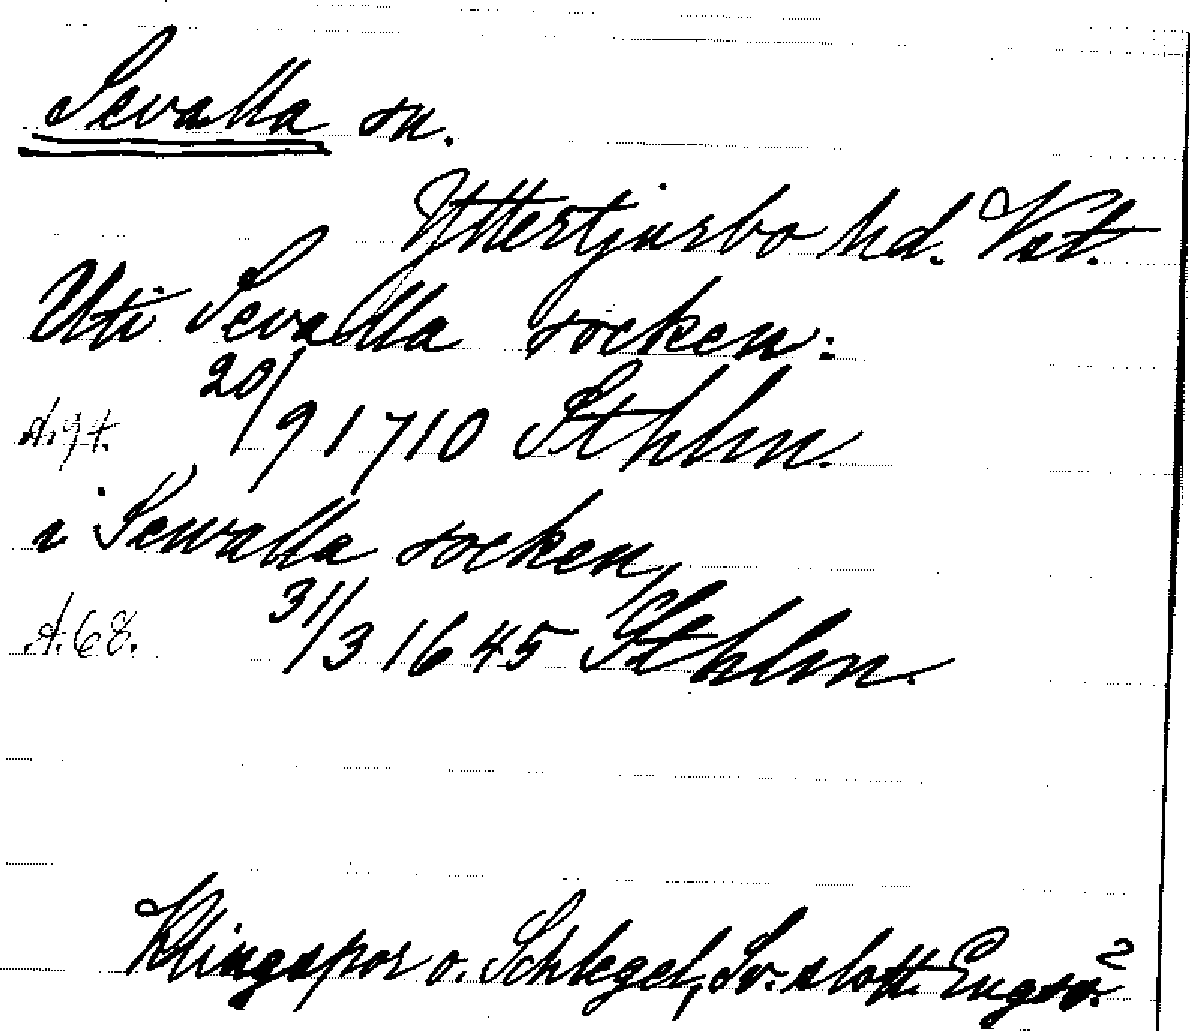 Sevalla sn.
Yttertjurbo hd. Vst.
Uti Sevalla socken:
A. 94. 20/9 1710 Sthlm.
i Sewalla socken,
A. 68. 31/3 1645 Sthlm.
Klingspor o. Schlegel, Sv. slott. Engsö. 2